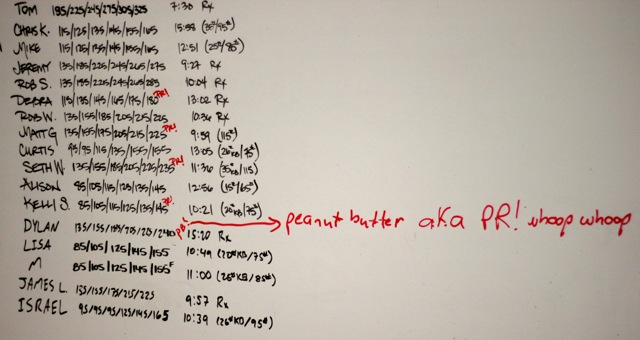 TOM 185/225/245/275/305/325 7:30 Rx
CHRIS K. 115/125/135/145/155/165 15:58 (35#/95#)
MIKE 115/125/135/145/155/165 12:51 (25#/95#)
JEREMY 135/185/225/245/265/275 9:27 Rx
ROB S. 135/185/225/245/265/285 10:04 Rx
DEBRA 115/135/145/165/175/180 PR! 13:02 Rx
ROB W. 135/155/185/205/215/225 10:36 Rx
MATT G 135/155/175/205/215/225 PR! 9:59 (115#)
CURTIS 95/95/115/135/155/155 13:05 (26#KB/75#)
SETH W. 135/155/185/205/225/235 PR! 11:36 (35#KB/115)
ALISON 85/105/115/125/135/145 12:56 (15#/65#)
KELLI S. 85/105/115/125/135/145 PR 10:21 (20#KB/75#)
DYLAN 135/155/185/205/205/240 PB 15:20 Rx peanut butter aka PR! whoop whoop
LISA 85/105/125/145/155 10:49 (20#KB/75#)
M 85/105/125/145/155F 11:00 (26#KB/85#)
JAMES L. 135/155/175/215/225 9:57 Rx
ISRAEL 95/95/95/125/145/165 10:39 (26#KB/95#)